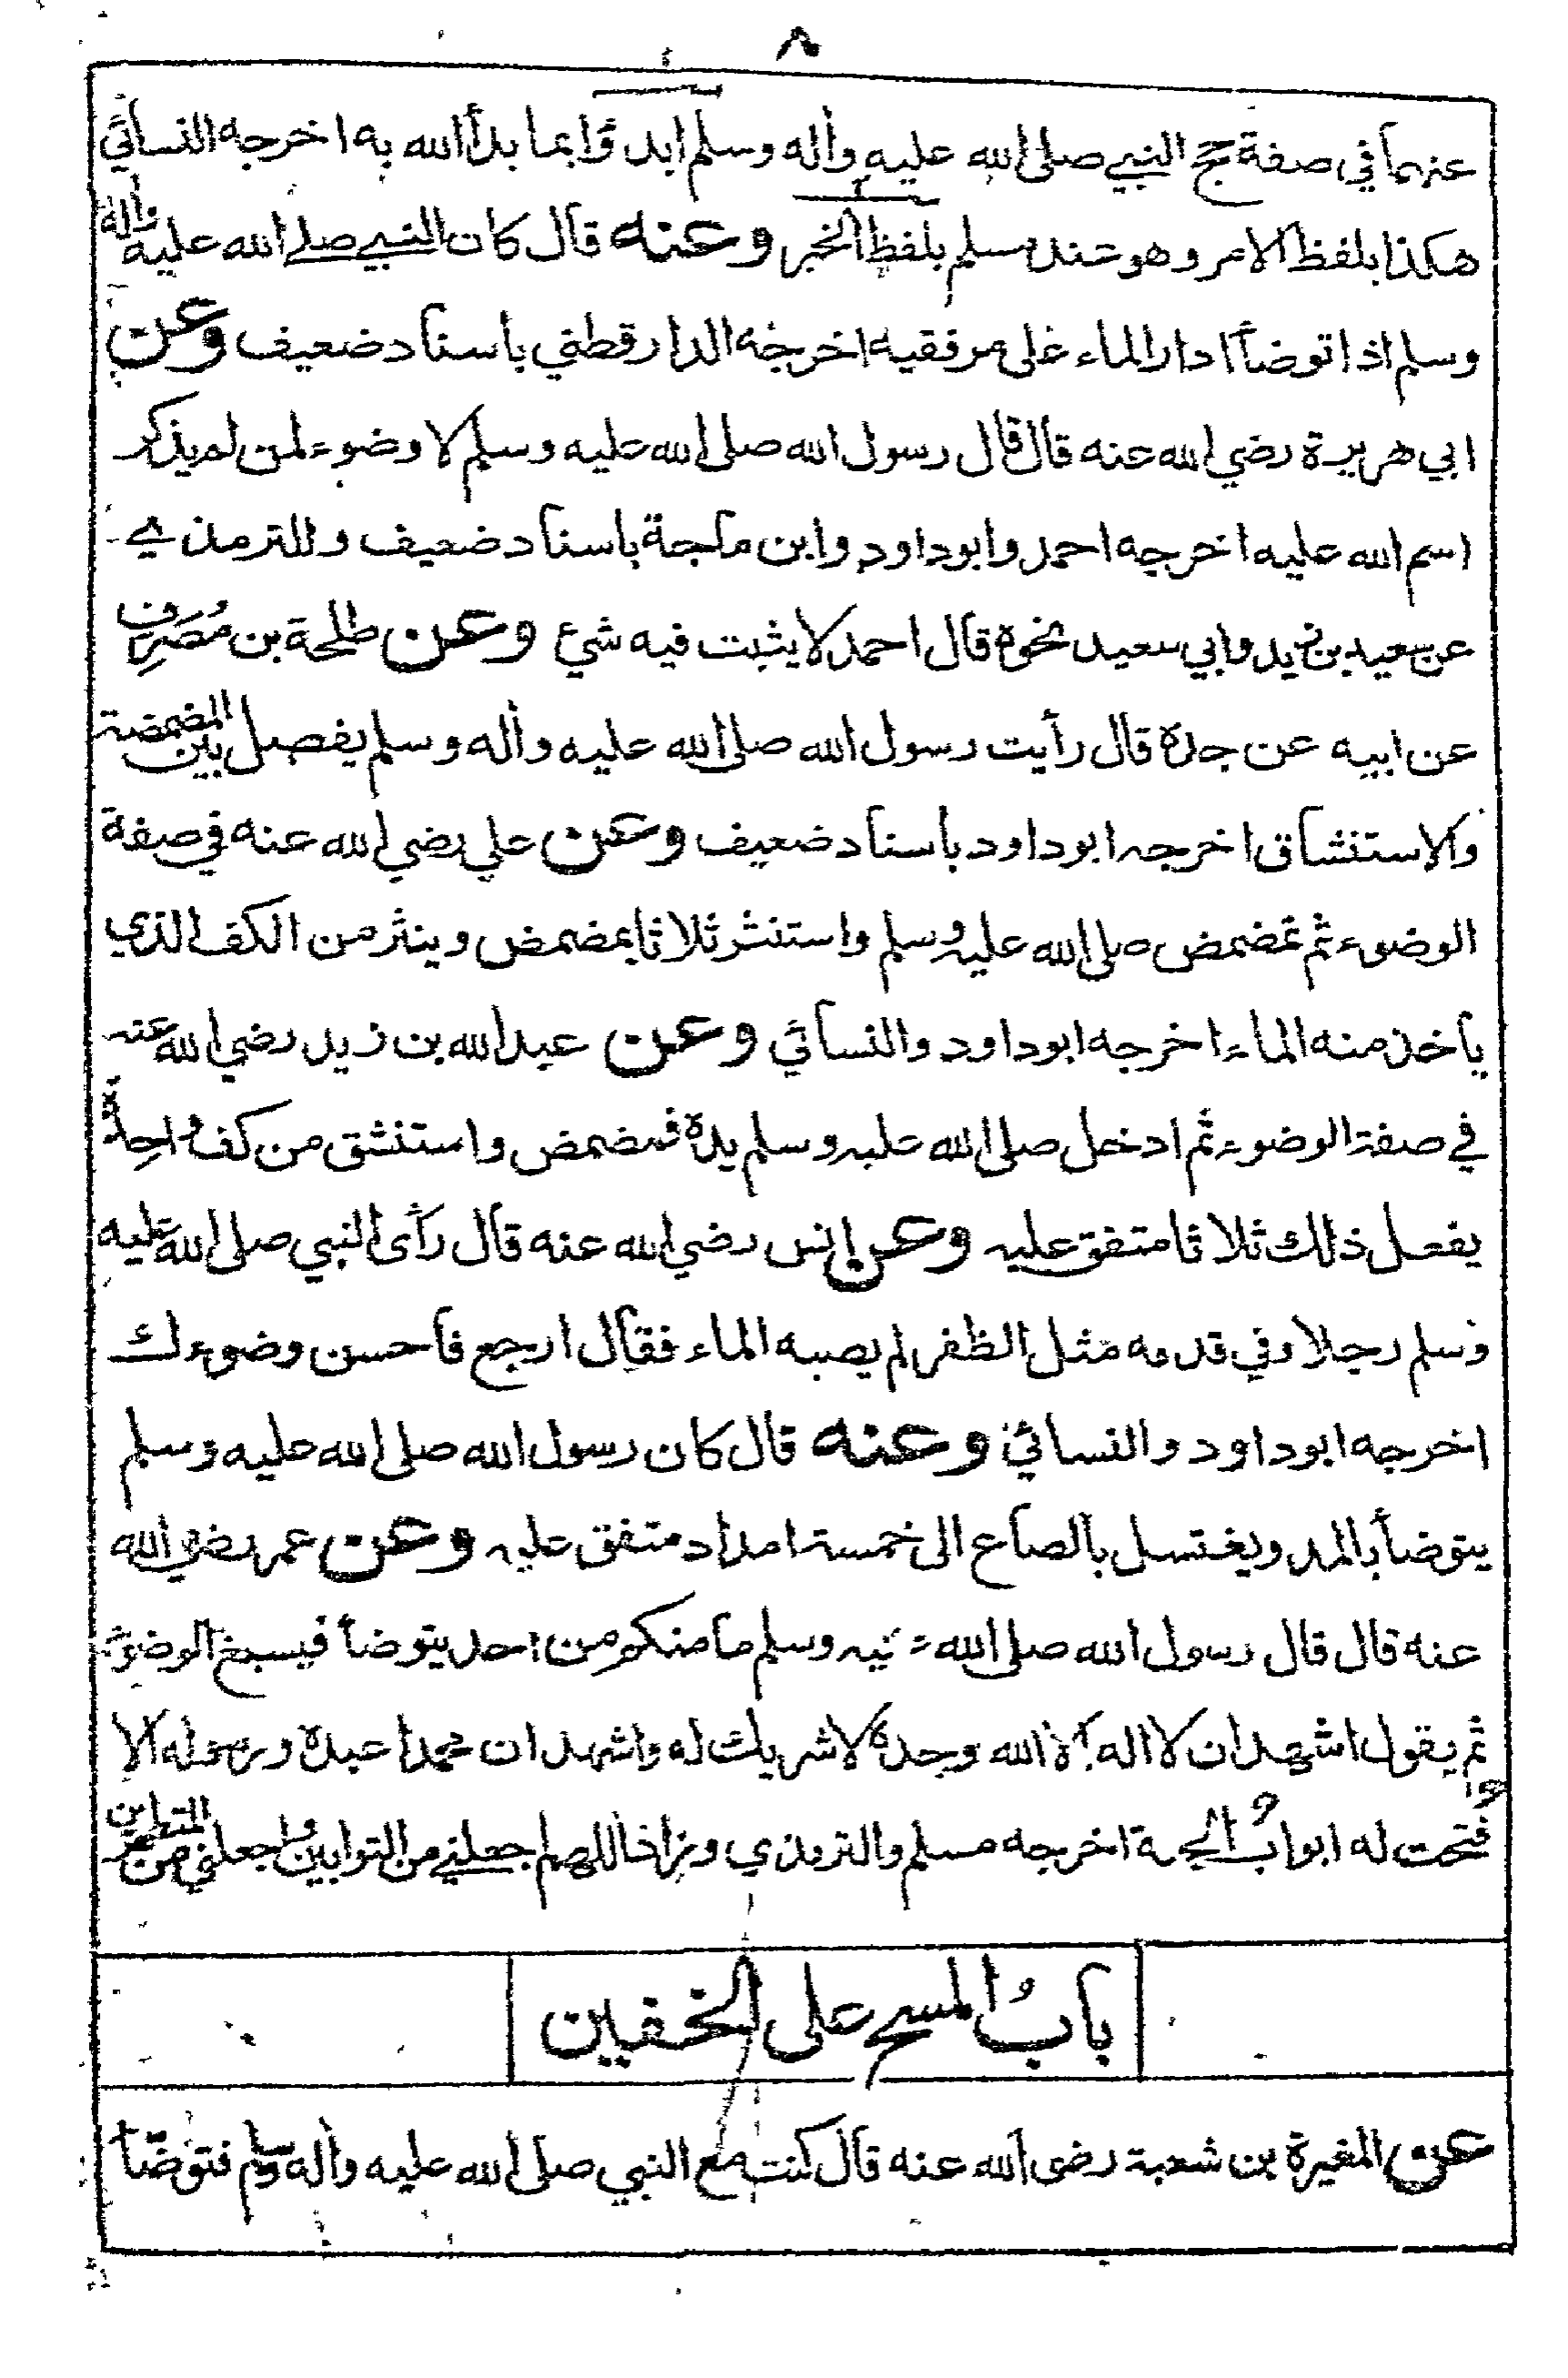 ٨
عنهما في صفة حج النبي صلى الله عليه وأله وسلم ابدؤا بما بدأ الله به اخرجه النسائي
هكذا بلفظ الامر وهو عند مسلم بلفظ الخبر وعنه قال كان النبي صلى الله عليه وأله
وسلم اذا توضأ ادار الماء على مرفقيه اخرجه الدارقطني بأسناد ضعيف وعن
ابي هريرة رضي الله عنه قال قال رسول الله صلى الله عليه وسلم لا وضوء لمن لم يذكر
اسم الله عليه اخرجه احمد وابوداود وابن ماجة باسناد ضعيف وللترمذي
عن سعيد بن زيد وابي سعيد نحوه قال احمد لا يثبت فيه شيء وعن طلحة بن مُصَرِّف
عن ابيه عن جده قال رأيت رسول الله صلى الله عليه وأله وسلم يفصل بين المضمضة
والاستنشاق اخرجه ابوداود بأسناد ضعيف وعن علي رضي الله عنه في صفة
الوضوء ثم تمضمض صلى الله عليه وسلم واستنثر ثلاثا يمضمض وينثر من الكف الذي
يأخذ منه الماء اخرجه ابوداود والنسائي وعن عبد الله بن زيد رضي الله عنه
في صفة الوضوء ثم ادخل صلى الله عليه وسلم يده فمضمض واستنشق من كف واحدة
يفعل ذلك ثلاثا متفق عليه وعن انس رضي الله عنه قال رأى النبي صلى الله عليه
وسلم رجلا وفي قدمه مثل الظفر لم يصبه الماء فقال ارجع فأحسن وضوءك
اخرجه ابوداود والنسائي وعنه قال كان رسول الله صلى الله عليه وسلم
يتوضأ بالمد ويغتسل بالصاع الى خمسة امداد متفق عليه وعن عمر رضي الله
عنه قال قال رسول الله صلى الله عليه وسلم ما منكم من احد يتوضأ فيسبغ الوضوء
ثم يقول اشهد ان لا اله الا الله وحده لا شريك له واشهد ان محمدا عبده ورسوله الا
فتحت له ابوابُ الجنة اخرجه مسلم والترمذي وزاد اللهم اجعلني من التوابين واجعلني من المتطهرين
بابُ المسح على الخفين
عن المغيرة بن شعبة رضى الله عنه قال كنت مع النبي صلى الله عليه وأله وسلم فتوضّأ